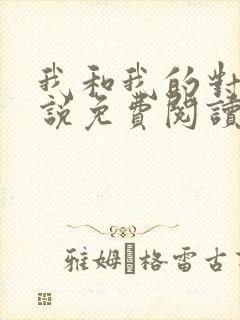 我和我的對
說免費閱讀
雅姆·格雷古